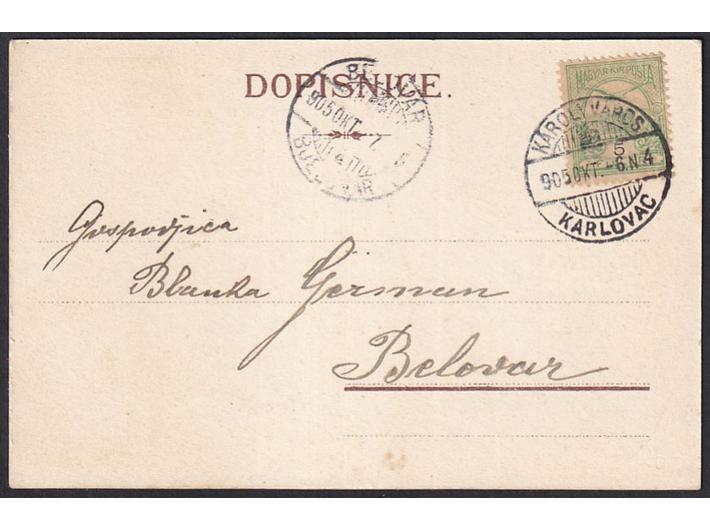 DOPISNICE.
MAGYAR KIR. POSTA
KÁROLYVÁROS
905 OKT. -6. N 4
KARLOVAC
905 OKT. 7.
Gospodjica
Blanka German
Belovar